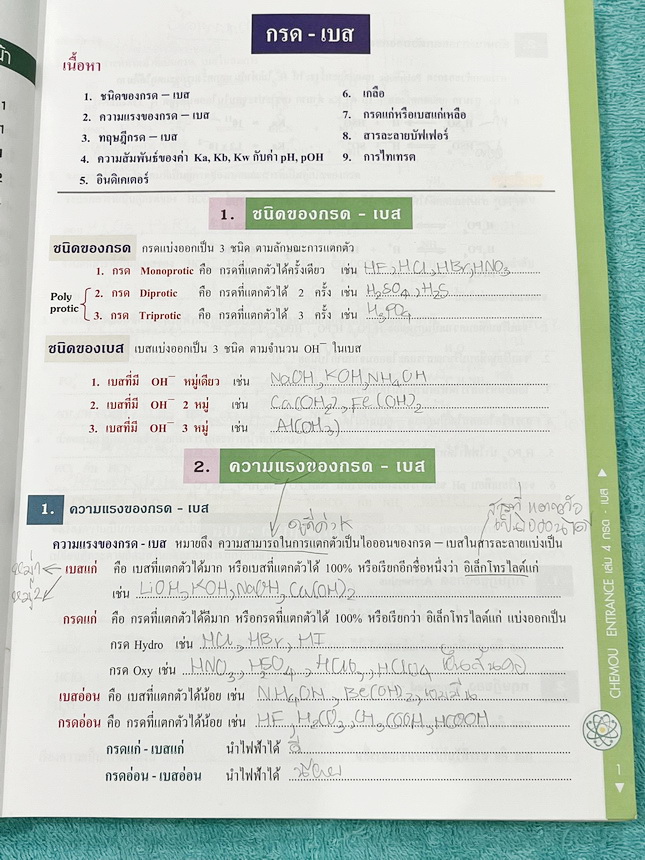 กรด - เบส
เนื้อหา
1. ชนิดของกรด – เบส
2. ความแรงของกรด – เบส
3. ทฤษฎีกรด – เบส
4. ความสัมพันธ์ของค่า Ka, Kb, Kw กับค่า pH, pOH
5. อินดิเคเตอร์
6. เกลือ
7. กรดแก่หรือเบสแก่เหลือ
8. สารละลายบัฟเฟอร์
9. การไทเทรต
1. ชนิดของกรด - เบส
ชนิดของกรด กรดแบ่งออกเป็น 3 ชนิด ตามลักษณะการแตกตัว
1. กรด Monoprotic คือ กรดที่แตกตัวได้ครั้งเดียว เช่น HF, HCl, HBr, HNO3
Poly protic
2. กรด Diprotic คือ กรดที่แตกตัวได้ 2 ครั้ง เช่น H2SO4, H2S
3. กรด Triprotic คือ กรดที่แตกตัวได้ 3 ครั้ง เช่น H3PO4
ชนิดของเบส เบสแบ่งออกเป็น 3 ชนิด ตามจำนวน OH⁻ ในเบส
1. เบสที่มี OH⁻ หมู่เดียว เช่น NaOH, KOH, NH4OH
2. เบสที่มี OH⁻ 2 หมู่ เช่น Ca(OH2), Fe(OH)2
3. เบสที่มี OH⁻ 3 หมู่ เช่น Al(OH3)
2. ความแรงของกรด - เบส
1. ความแรงของกรด - เบส
ดูที่ค่า K
ความแรงของกรด - เบส หมายถึง ความสามารถในการแตกตัวเป็นไอออนของกรด – เบสในสารละลายแบ่งเป็น
หมู่1
หมู่2
เบสแก่ คือ เบสที่แตกตัวได้มาก หรือเบสที่แตกตัวได้ 100% หรือเรียกอีกชื่อหนึ่งว่า อิเล็กโทรไลต์แก่
เช่น LiOH, KOH, NaOH, Ca(OH)2
กรดแก่ คือ กรดที่แตกตัวได้ดีมาก หรือกรดที่แตกตัวได้ 100% หรือเรียกว่า อิเล็กโทรไลต์แก่ แบ่งออกเป็น
กรด Hydro เช่น HCl, HBr, HI
กรด Oxy เช่น HNO3, H2SO4, HClO3, HClO4
เบสอ่อน คือ เบสที่แตกตัวได้น้อย เช่น NH4OH, Be(OH)2,
กรดอ่อน คือ กรดที่แตกตัวได้น้อย เช่น HF, H2CO3, CH3COOH, HCOOH
กรดแก่ - เบสแก่ นำไฟฟ้าได้ ดี
กรดอ่อน - เบสอ่อน นำไฟฟ้าได้ น้อย
CHEMOU ENTRANCE เล่ม 4 กรด - เบส
1